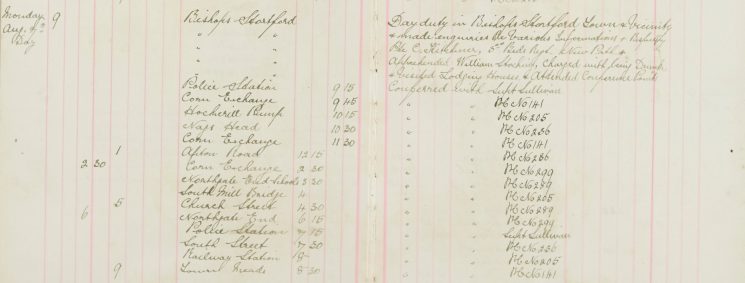 Monday 9 Bishops Stortford Day duty in Bishops Stortford Town & Vicinity
Aug. " & made enquiries Re Various Informations &
Day " Pte C. Kitchener, 5th Beds Regt.
" Apprehended William Charged with being Drunk
" & Visited Lodging Houses & Attended Conference Point
Police Station 9 15 Conferred with Supt Sullivan
Corn Exchange 9 45 " " PC No 141
Hockerill Pump 10 15 " " PC No 205
Nags Head 10 30 " " PC No 236
Corn Exchange 11 30 " " PC No 141
1 Apton Road 12 15 " " PC No 236
2 30 Corn Exchange 2 30 " " PC No 299
Northgate End Schools 3 30 " " PC No 289
South Mill Bridge 4 " " PC No 205
5 Church Street 4 30 " " PC No 289
6 Northgate End 6 15 " " PC No 299
Police Station 7 15 " " Supt Sullivan
South Street 7 30 " " PC No 236
Railway Station 8 - " " PC No 205
9 Town Meads 8 30 " " PC No 141